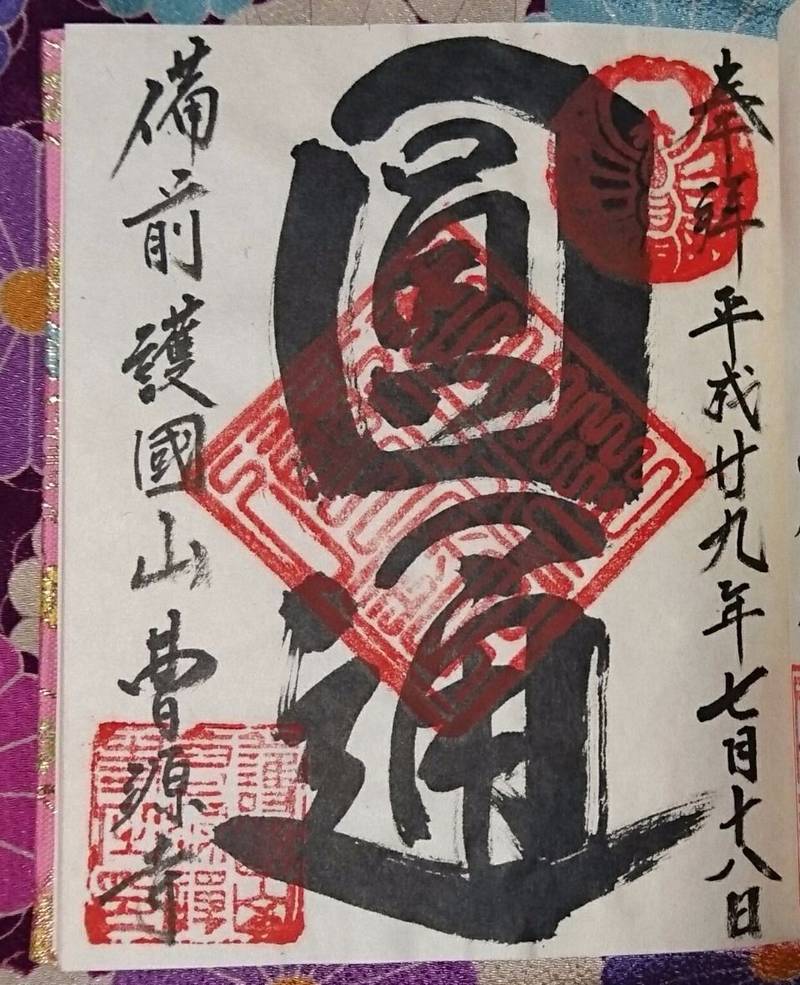 奉拝 平成廿九年七月十八日
圓通
備前護國山曹源寺